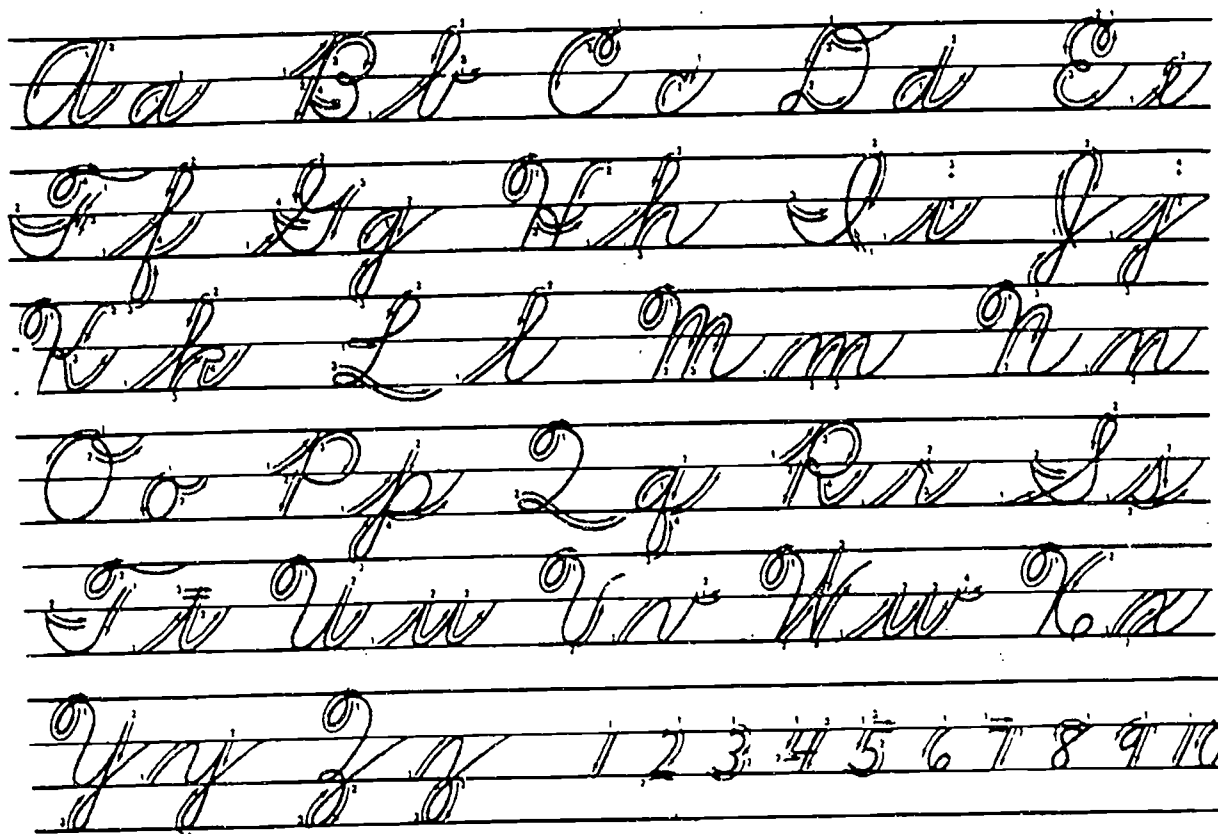 A a B b C c D d E e
F f G g H h I i J j
K k L l M m N n
O o P p Q q R r S s
T t U u V v W w X x
Y y Z z 1 2 3 4 5 6 7 8 9 10